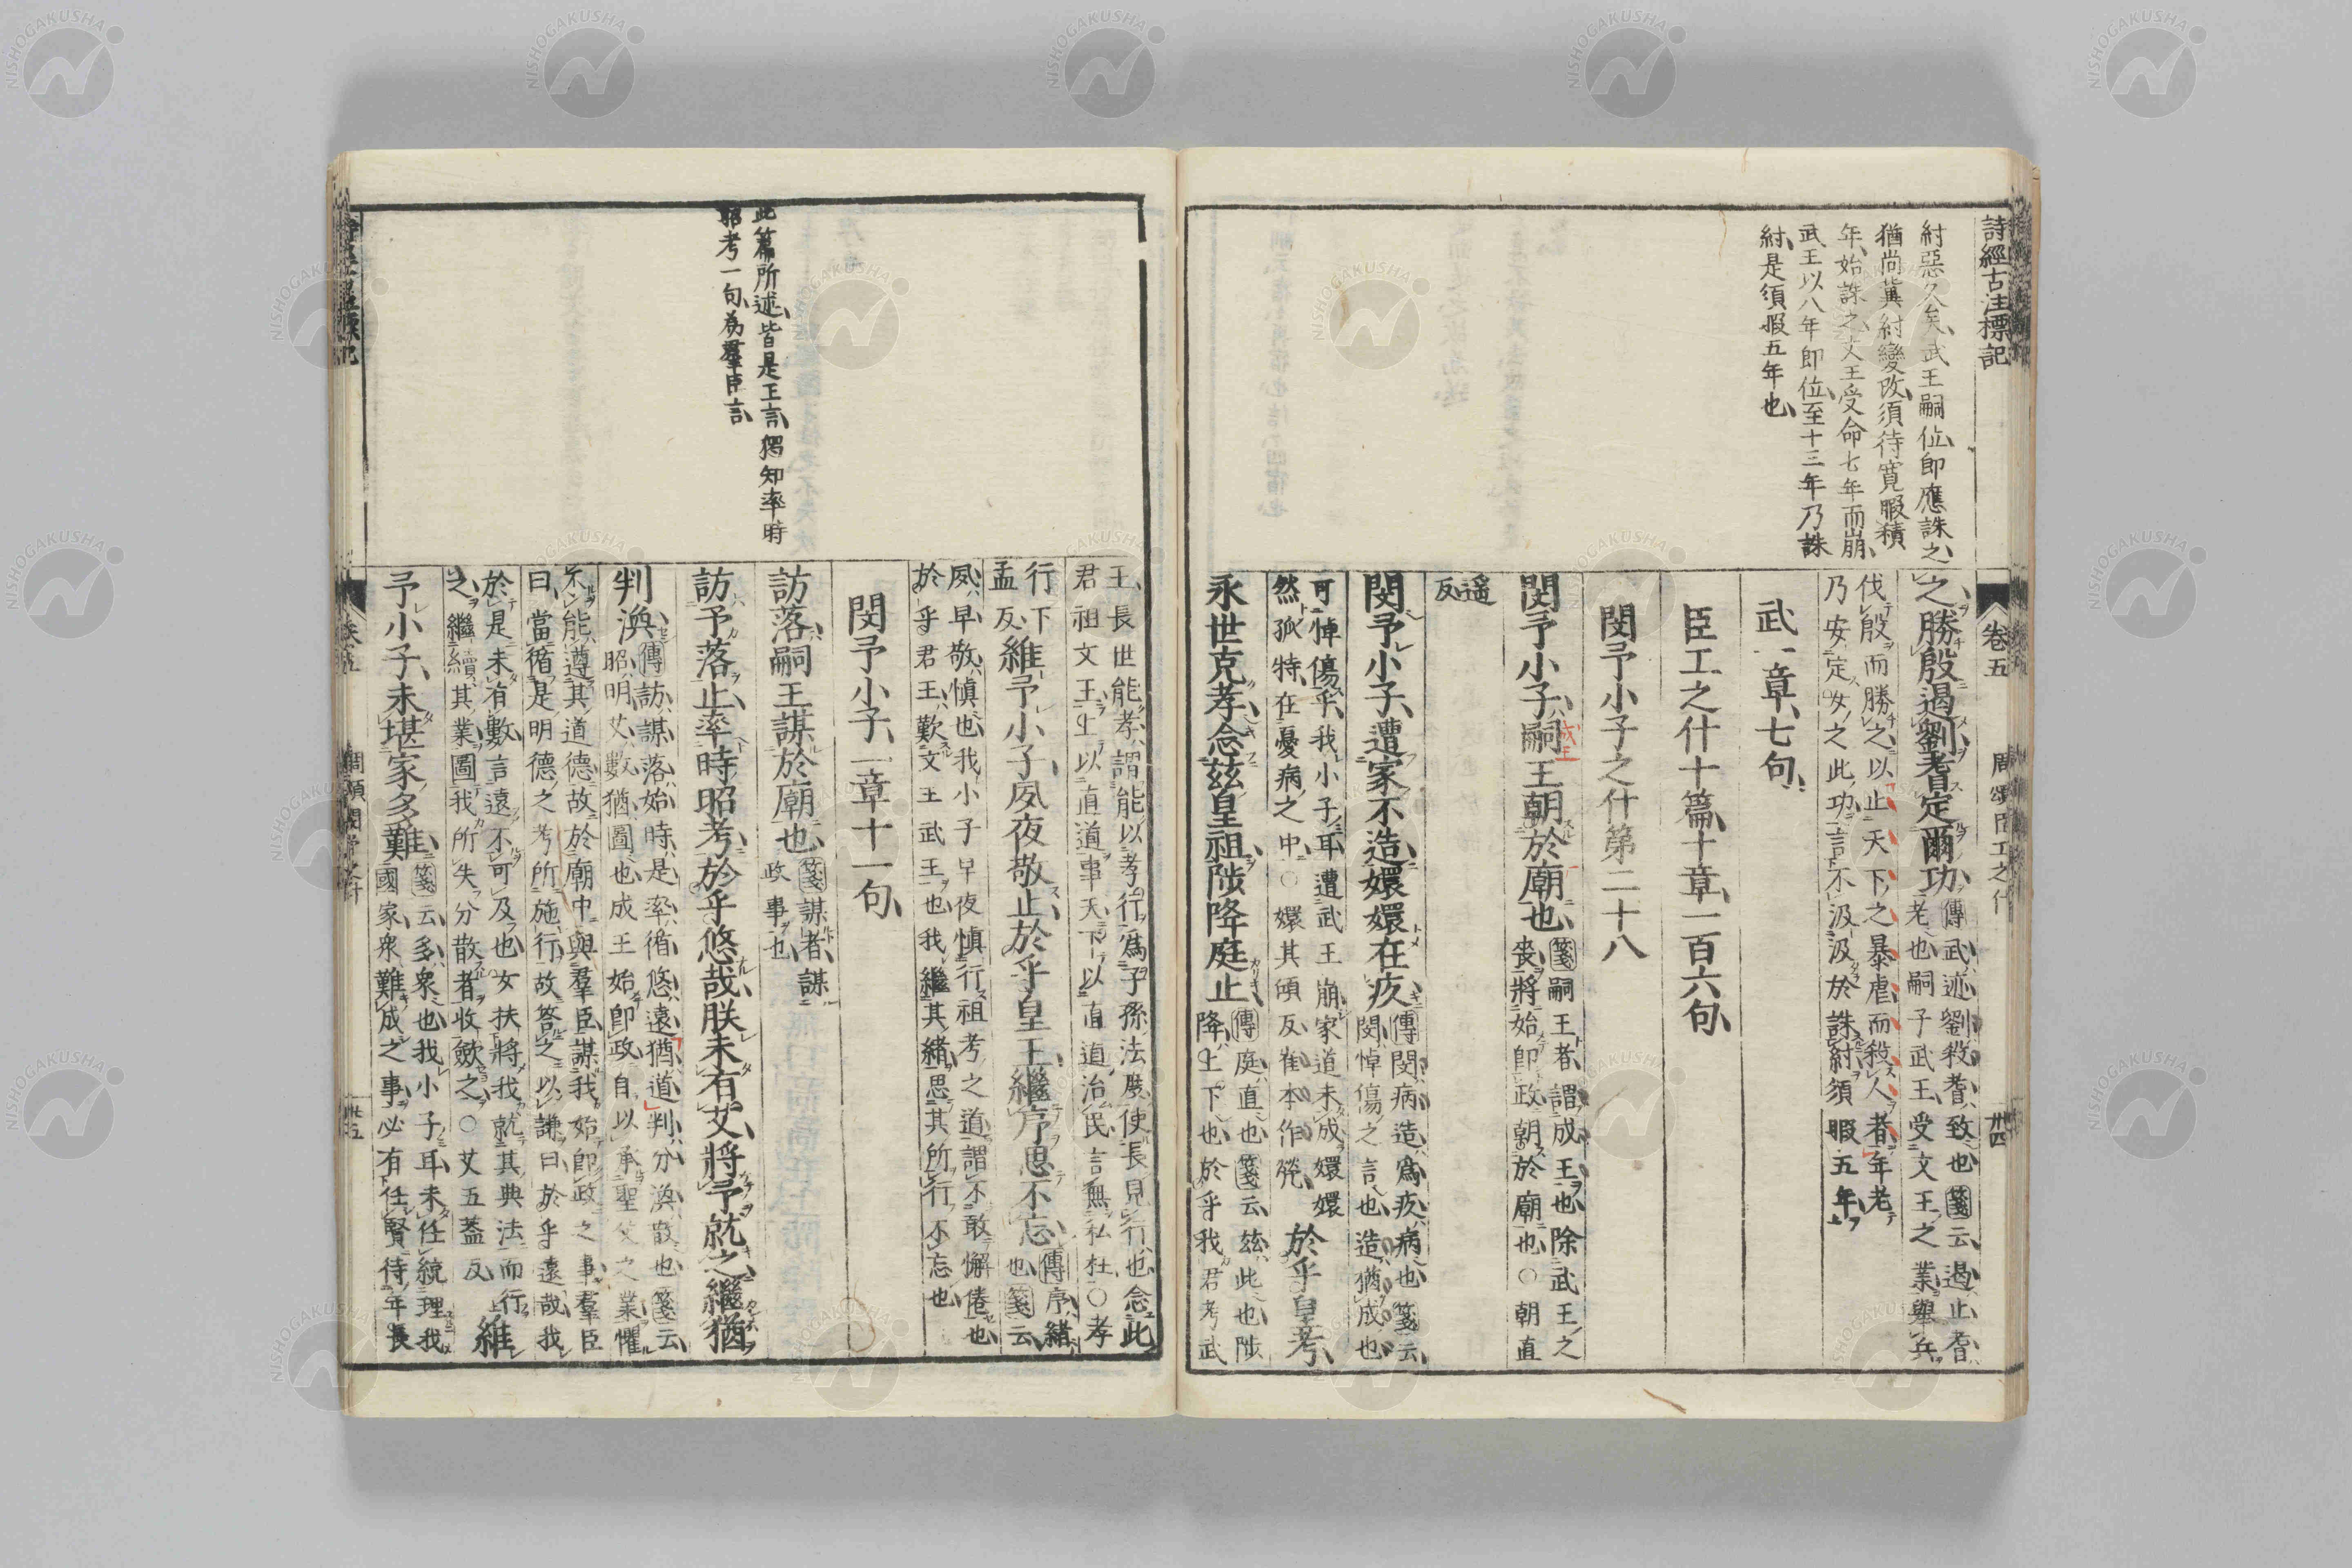 詩經古注標記
卷五
周頌臣工之什
卅四
紂惡久矣武王嗣位即應誅之
猶尚冀紂變改須待寬暇積
年始誅之文王受命七年而崩
武王以八年即位至十三年乃誅
紂是須暇五年也
之勝殷遏劉耆定爾功傳武迹劉殺耆致也箋云遏止耆
老也嗣子武王受文王之業舉兵
伐殷而勝之以止天下之暴虐而殺人者年老
乃安定女之此功言不汲汲於誅紂須暇五年
武一章七句
臣工之什十篇十章一百六句
閔予小子之什第二十八
閔予小子嗣王朝於廟也箋嗣王者謂成王也除武王之
喪將始即政朝於廟也○朝直
遥
反
閔予小子遭家不造嬛嬛在疚傳閔病造爲疚病也箋云
閔悼傷之言也造猶成也
可悼傷乎我小子耳遭武王崩家道未成嬛嬛
然孤特在憂病之中○嬛其傾反崔本作煢
於乎皇考
永世克孝念茲皇祖陟降庭止傳庭直也箋云茲此也陟
降上下也於乎我君考武
王長世能孝謂能以孝行爲子孫法度使長見行也念此
君祖文王上以直道事天下以直道治民言無私枉○孝
行下
孟反
維予小子夙夜敬止於乎皇王繼序思不忘傳序緒
也箋云
夙早敬慎也我小子早夜慎行祖考之道謂不敢懈倦也
於乎君王歎文王武王也我繼其緒思其所行不忘也
閔予小子一章十一句
此篇所述皆是王言獨知率時
昭考一句為羣臣言
訪落嗣王謀於廟也箋謀者謀
政事也
訪予落止率時昭考於乎悠哉朕未有艾將予就之繼猶
判渙傳訪謀落始時是率循悠遠猶道判分渙散也箋云
昭明艾數猶圖也成王始即政自以承聖父之業懼
不能遵其道德故於廟中與羣臣謀我始即政之事羣臣
曰當循是明德之考所施行故荅之以謙曰於乎遠哉我
於是未有數言遠不可及也女扶將我就其典法而行
之繼續其業圖我所失分散者收斂之○艾五蓋反
維
予小子未堪家多難箋云多衆也我小子耳未任統理我
國家衆難成之事必有任賢待年長
卷五
卅五